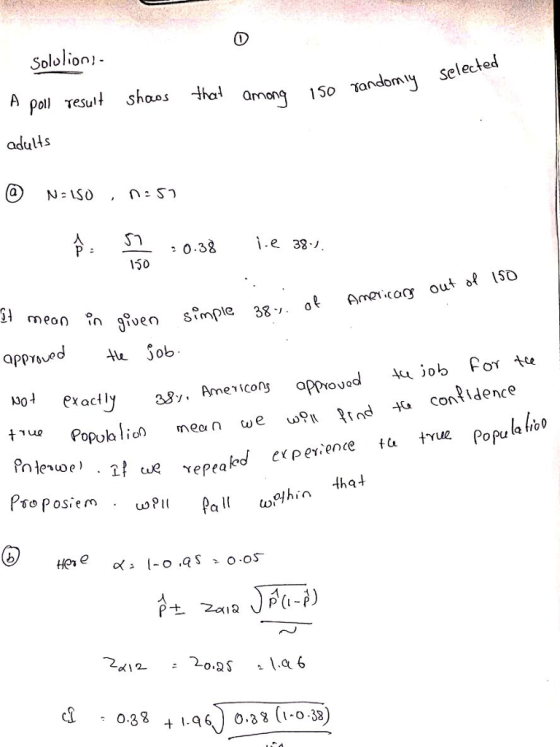 ①
Solution:-
A poll result shows that among 150 randomly selected
adults
ⓐ N=150 , n=57
p̂ = 57/150 = 0.38 i.e 38%.
It mean in given simple 38%. of Americans out of 150
approved the job.
Not exactly 38%. Americans approved the job for the
true population mean we will find the confidence
interwel. If we repeated experience the true population
Proposiem. will fall within that
ⓑ Here α = 1-0.95 = 0.05
p̂ ± Zα/2 √p̂(1-p̂)
~
Zα/2 = Z0.25 = 1.96
CI = 0.38 + 1.96√0.38(1-0.38)